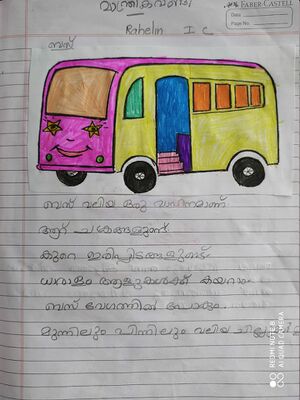 മാന്ത്രികവണ്ടി
FABER-CASTELL
Date
Page No.
Rahelin I C
ബസ്
ബസ് വലിയ ഒരു വാഹനമാണ്
ആറ് ചക്രങ്ങളുണ്ട്
കുറെ ഇരിപ്പിടങ്ങളുണ്ട്
ധാരാളം ആളുകൾക്ക് കയറാം
ബസ് വേഗത്തിൽ പോകും
മുന്നിലും പിന്നിലും വലിയ
REDMI NOTE 8
AI QUAD CAMERA